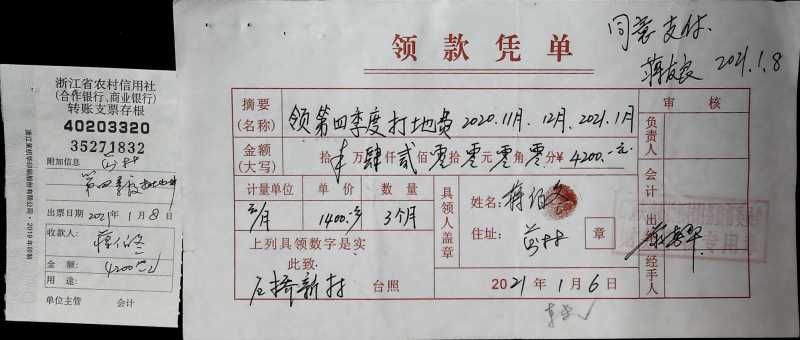 浙江省农村信用社
(合作银行、商业银行)
转账支票存根
40203320
35271832
附加信息
第四季度打地费
出票日期 2021年 1月 8日
收款人:
蒋伯冬
金 额: 4200元
用 途:
单位主管 会计
领款凭单
同意支付.
2021.1.8
摘要
(名称)
领第四季度打地费 2020.11月、12月、2021.1月
金额
(大写)
拾 万肆仟贰佰零拾零元零角零分¥ 4200.-元
计量单位 单 价 数 量
元/月 1400.-元 3个月
上列具领数字是实
此致
石桥新村 台照
具领人盖章
姓名: 蒋伯冬
住址: 章
2021年 1月 6日
审 核
负责人
会计
出
经手人